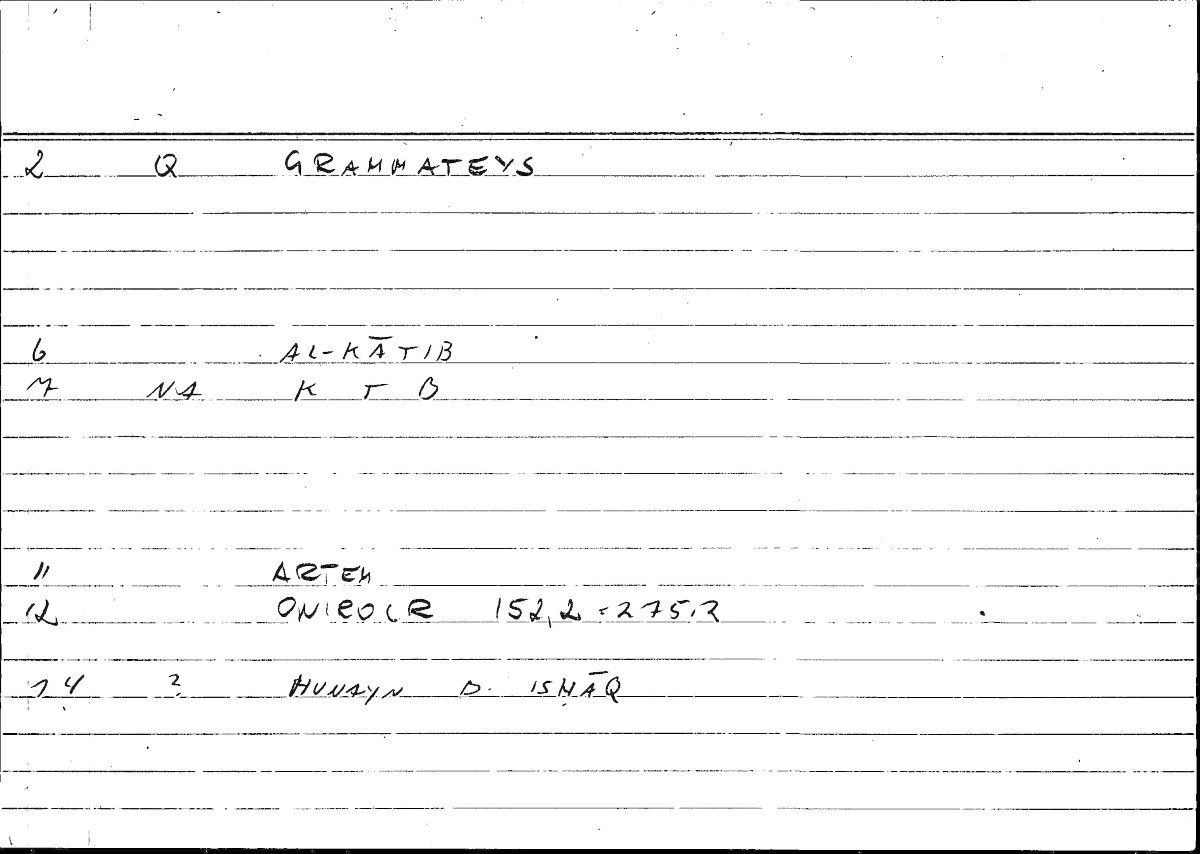 2 Q GRAMMATEYS
6 AL-KĀTIB
7 NA K T B
11 ARTEM
12 ONIROCR 152,2 = 275.2
14 ? HUNAYN B. ISḤĀQ